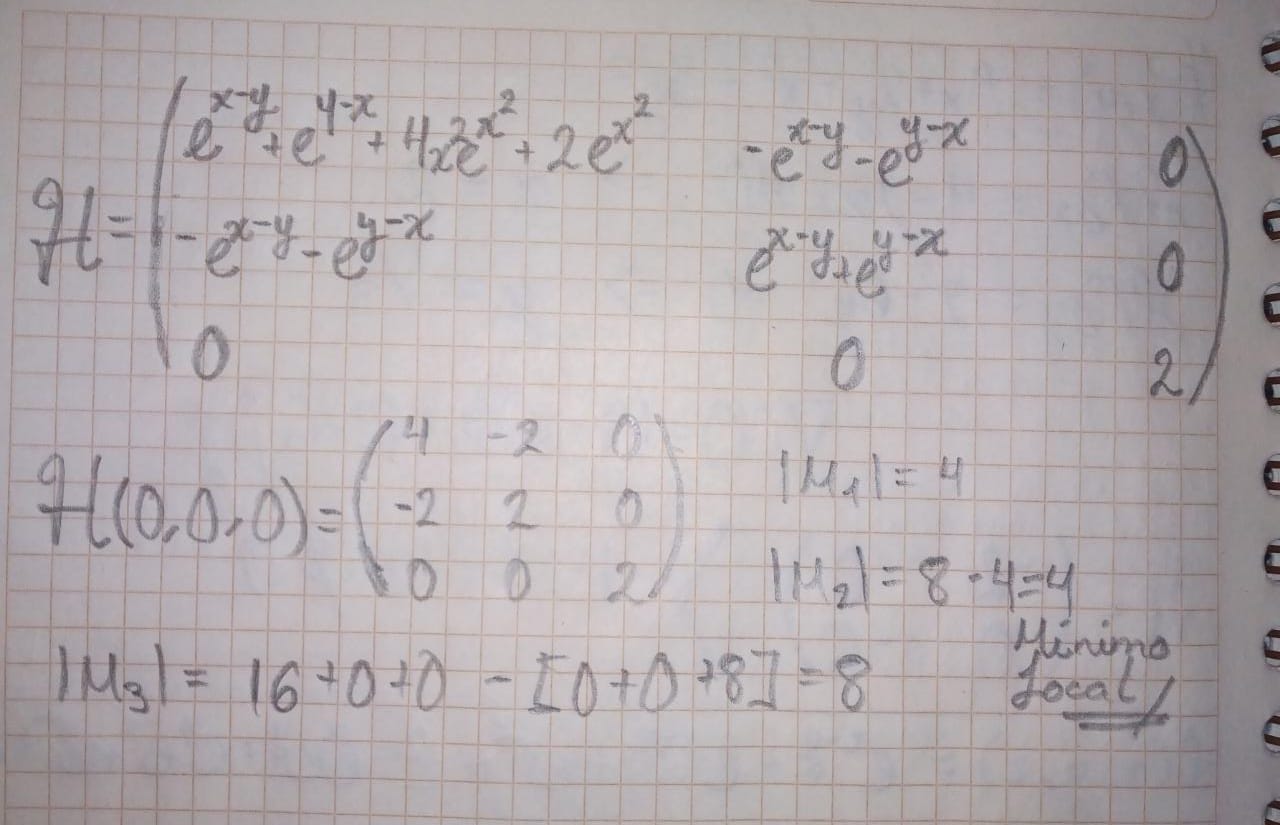 ℋ = ( e^{x-y} + e^{y-x} + 4x²e^{x²} + 2e^{x²}   -e^{x-y} - e^{y-x}   0
-e^{x-y} - e^{y-x}   e^{x-y} + e^{y-x}   0
0   0   2 )
ℋ(0,0,0) = ( 4 -2 0
-2 2 0
0 0 2 )
|M₁| = 4
|M₂| = 8 - 4 = 4
|M₃| = 16 + 0 + 0 - [0 + 0 + 8] = 8
Mínimo
Local